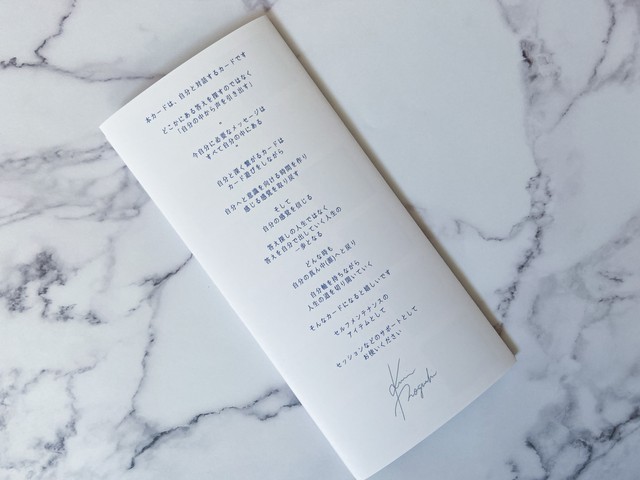 本カードは、自分と対話するカードです
どこかにある答えを探すのではなく
「自分の中から声を引き出す」
*
今自分に必要なメッセージは
すべて自分の中にある
*
自分と深く繋がるカードは
カード遊びをしながら
自分へと意識を向ける時間を創り
感じる感覚を取り戻す
そして
自分の感覚を信じる
答え探しの人生ではなく
答えを自分で出していく人生の
一歩となる
どんな時も
自分の真ん中(源)へと戻り
自分軸を持ちながら
人生の道を切り開いていく
そんなカードになると嬉しいです
セルフメンテナンスの
アイテムとして
セッションなどのサポートとして
お使いください